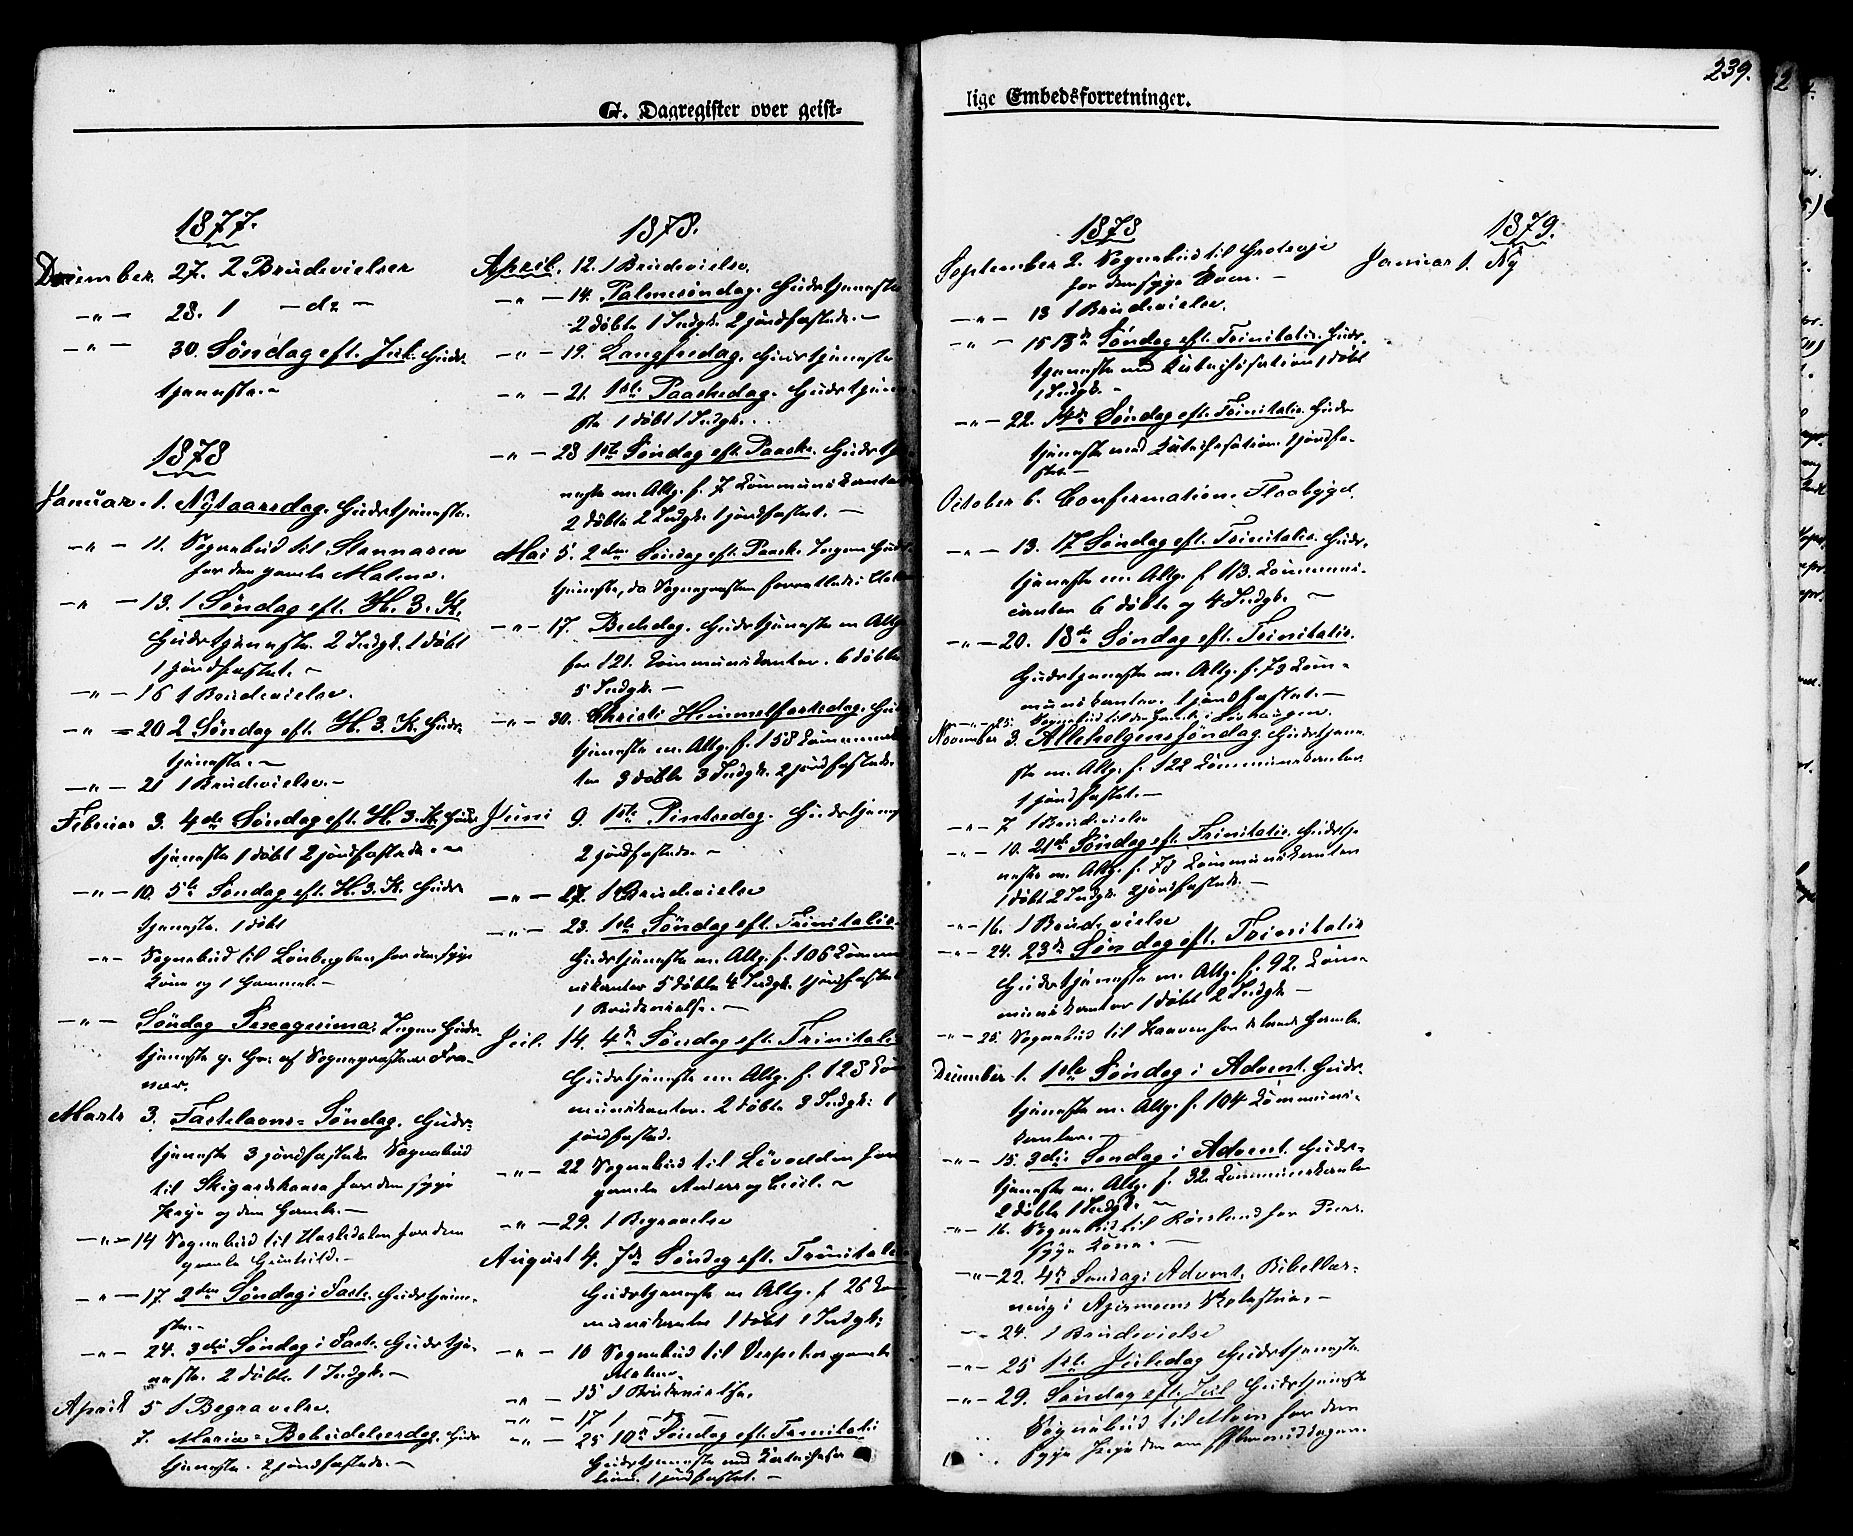 G. Dagregister over geist=
1877.
December 27. 2 Brudevielser
— " — 28. 1 — do —
— " — 30. Søndag eft. Jul. Guds-
tjeneste. —
1878
Januar 1. Nytaarsdag. Gudstjeneste.
— " — 11. Sognebud til
for den gamle Malene.
— " — 13. 1 Søndag eft. H. 3. K.
Gudstjeneste. 2 Indgk. 1 døbt
1 jordfæstet. —
— " — 16 1 Brudevielse.
— " — 20 2 Søndag eft. H. 3. K. Guds-
tjeneste. —
— " — 21 1 Brudevielse. —
Februar 3. 4de Søndag eft. H. 3. K. Guds-
tjeneste 1 døbt 2 jordfæstede. —
— " — 10. 5te Søndag eft. H. 3. K. Guds-
tjeneste. 1 døbt
— " — Sognebud til for den syge
Kone og 1 Gammel. —
— " — Søndag Sexagesima. Ingen Guds-
tjeneste p. Gr. af Sognepræstens Fra-
vær.
Marts 3. Fastelavns-Søndag. Guds-
tjeneste 3 jordfæstede Sognebud
til for den syge
og den Gamle. —
— " — 14 Sognebud til for den
gamle Gunhild. —
— " — 17. 2den Søndag i Faste. Gudstjene-
ste. —
— " — 24. 3die Søndag i Faste. Gudstje-
neste. 2 døbte 1 Indgk. —
April 5 1 Begravelse.
7. Mariæ-Bebudelsesdag. Guds-
tjeneste. 2 jordfæstede. —
1878.
April. 12. 1 Brudevielse.
— " — 14. Palmesøndag. Gudstjeneste
2 døbte 1 Indgk. 2 jordfæstede. —
— " — 19. Langfredag. Gudstjeneste
— " — 21. 1ste Paaskedag. Gudstjene-
ste 1 døbt 1 Indgk.
— " — 28 1ste Søndag eft. Paaske. Gudstj-
neste m. Altg. f. 7 Kommunikanter
2 døbte 2 Indgk. 1 jordfæstet. —
Mai 5. 2den Søndag eft. Paaske. Ingen Guds-
tjeneste, da Sognepræsten forrettede i
— " — 17. Bededag. Gudstjeneste m Altg
for 121. Kommunikanter. 6 døbte
5 Indgk. —
— " — 30. Christi Himmelfartsdag. Gud
tjeneste m. Altg. f. 158 Kommunikan
ter 3 døbte 3 Indgk. 2 jordfæstede.
Juni 9. 1ste Pintsedag. Gudstjenes
2 jordfæstede. —
— " — 27. 1 Brudevielse
— " — 23. 1ste Søndag eft. Trinitatis.
Gudstjeneste m. Altg. f. 106 Kommu
nikanter 5 døbte 4 Indgk. 1 jordfæstet
1 Brudevielse. —
Juli. 14. 4de Søndag eft. Trinitatis
Gudstjeneste m Altg. f. 128 Kom
munikanter. 2 døbte 3 Indgk. 1
jordfæsted.
— " — 22 Sognebud til for
gamle Anders og
— " — 29. 1 Begravelse
August 4. 7de Søndag eft. Trinitatis
Gudstjeneste m Altg. f 26 Kom
munikanter 1 døbt 1 Indgk.
— " — 10 Sognebud til gamle
Malene.
— " — 15 1 Brudevielse.
— " — 17 1 — " —
— " — 25 10de Søndag eft. Trinitati
Gudstjeneste med Katechisa
tion. 1 jordfæstet. —
lige Embedsforretninger.
239.
1878
September 2. Sognebud til
for den syge
— " — 13 1 Brudevielse.
— " — 15 13de Søndag eft. Trinitatis. Guds-
tjeneste med Katechisation 1 døbt
1 Indgk. —
— " — 22. 14de Søndag eft. Trinitatis. Guds-
tjeneste med Katechisation. 1 jordfæ-
stet. —
October 6. Confirmation i Flaabygd.
— " — 13. 17 Søndag eft. Trinitatis. Guds-
tjeneste m. Altg. f 113. Kommuni-
canter 6 døbte og 4 Indgk. —
— " — 20. 18de Søndag eft. Trinitatis.
Gudstjeneste m. Altg. f. 73 Kom-
munikanter. 1 jordfæstet. —
— " — 25. Sognebud til den Gamle i
November 3. Allehelgenssøndag. Gudstjene-
ste m. Altg. f. 122 Kommunikanter
1 jordfæstet. —
— " — 7 1 Brudevielse
— " — 10. 21de Søndag eft. Trinitatis. Gudstje
neste m. Altg. f. 78 Kommunikanter
1 døbt 2 Indgk. 2 jordfæstede. —
— " — 16. 1 Brudevielse
— " — 24. 23de Søndag eft. Trinitatis
Gudstjeneste m. Altg. f. 92. Kom-
munikanter 1 døbt 2 Indgk —
— " — 25. Sognebud til for Gamle.
December 1. 1ste Søndag i Advent. Guds-
tjeneste m. Altg. f. 104 Kommuni-
kanter. —
— " — 15. 3die Søndag i Advent. Guds-
tjeneste m. Altg. f. 32 Kommunikanter
2 døbte 1 Indgk. —
— " — 16. Sognebud til for
syge Kone. —
— " — 22. 4de Søndag i Advent. Bibellæs-
ning i Skolestue. —
— " — 24. 1 Brudevielse
— " — 25 1ste Juledag Gudstjeneste
— " — 29. Søndag eft. Jul Gudstjeneste
Sognebud til for den
syge
1879.
Januar 1. Ny